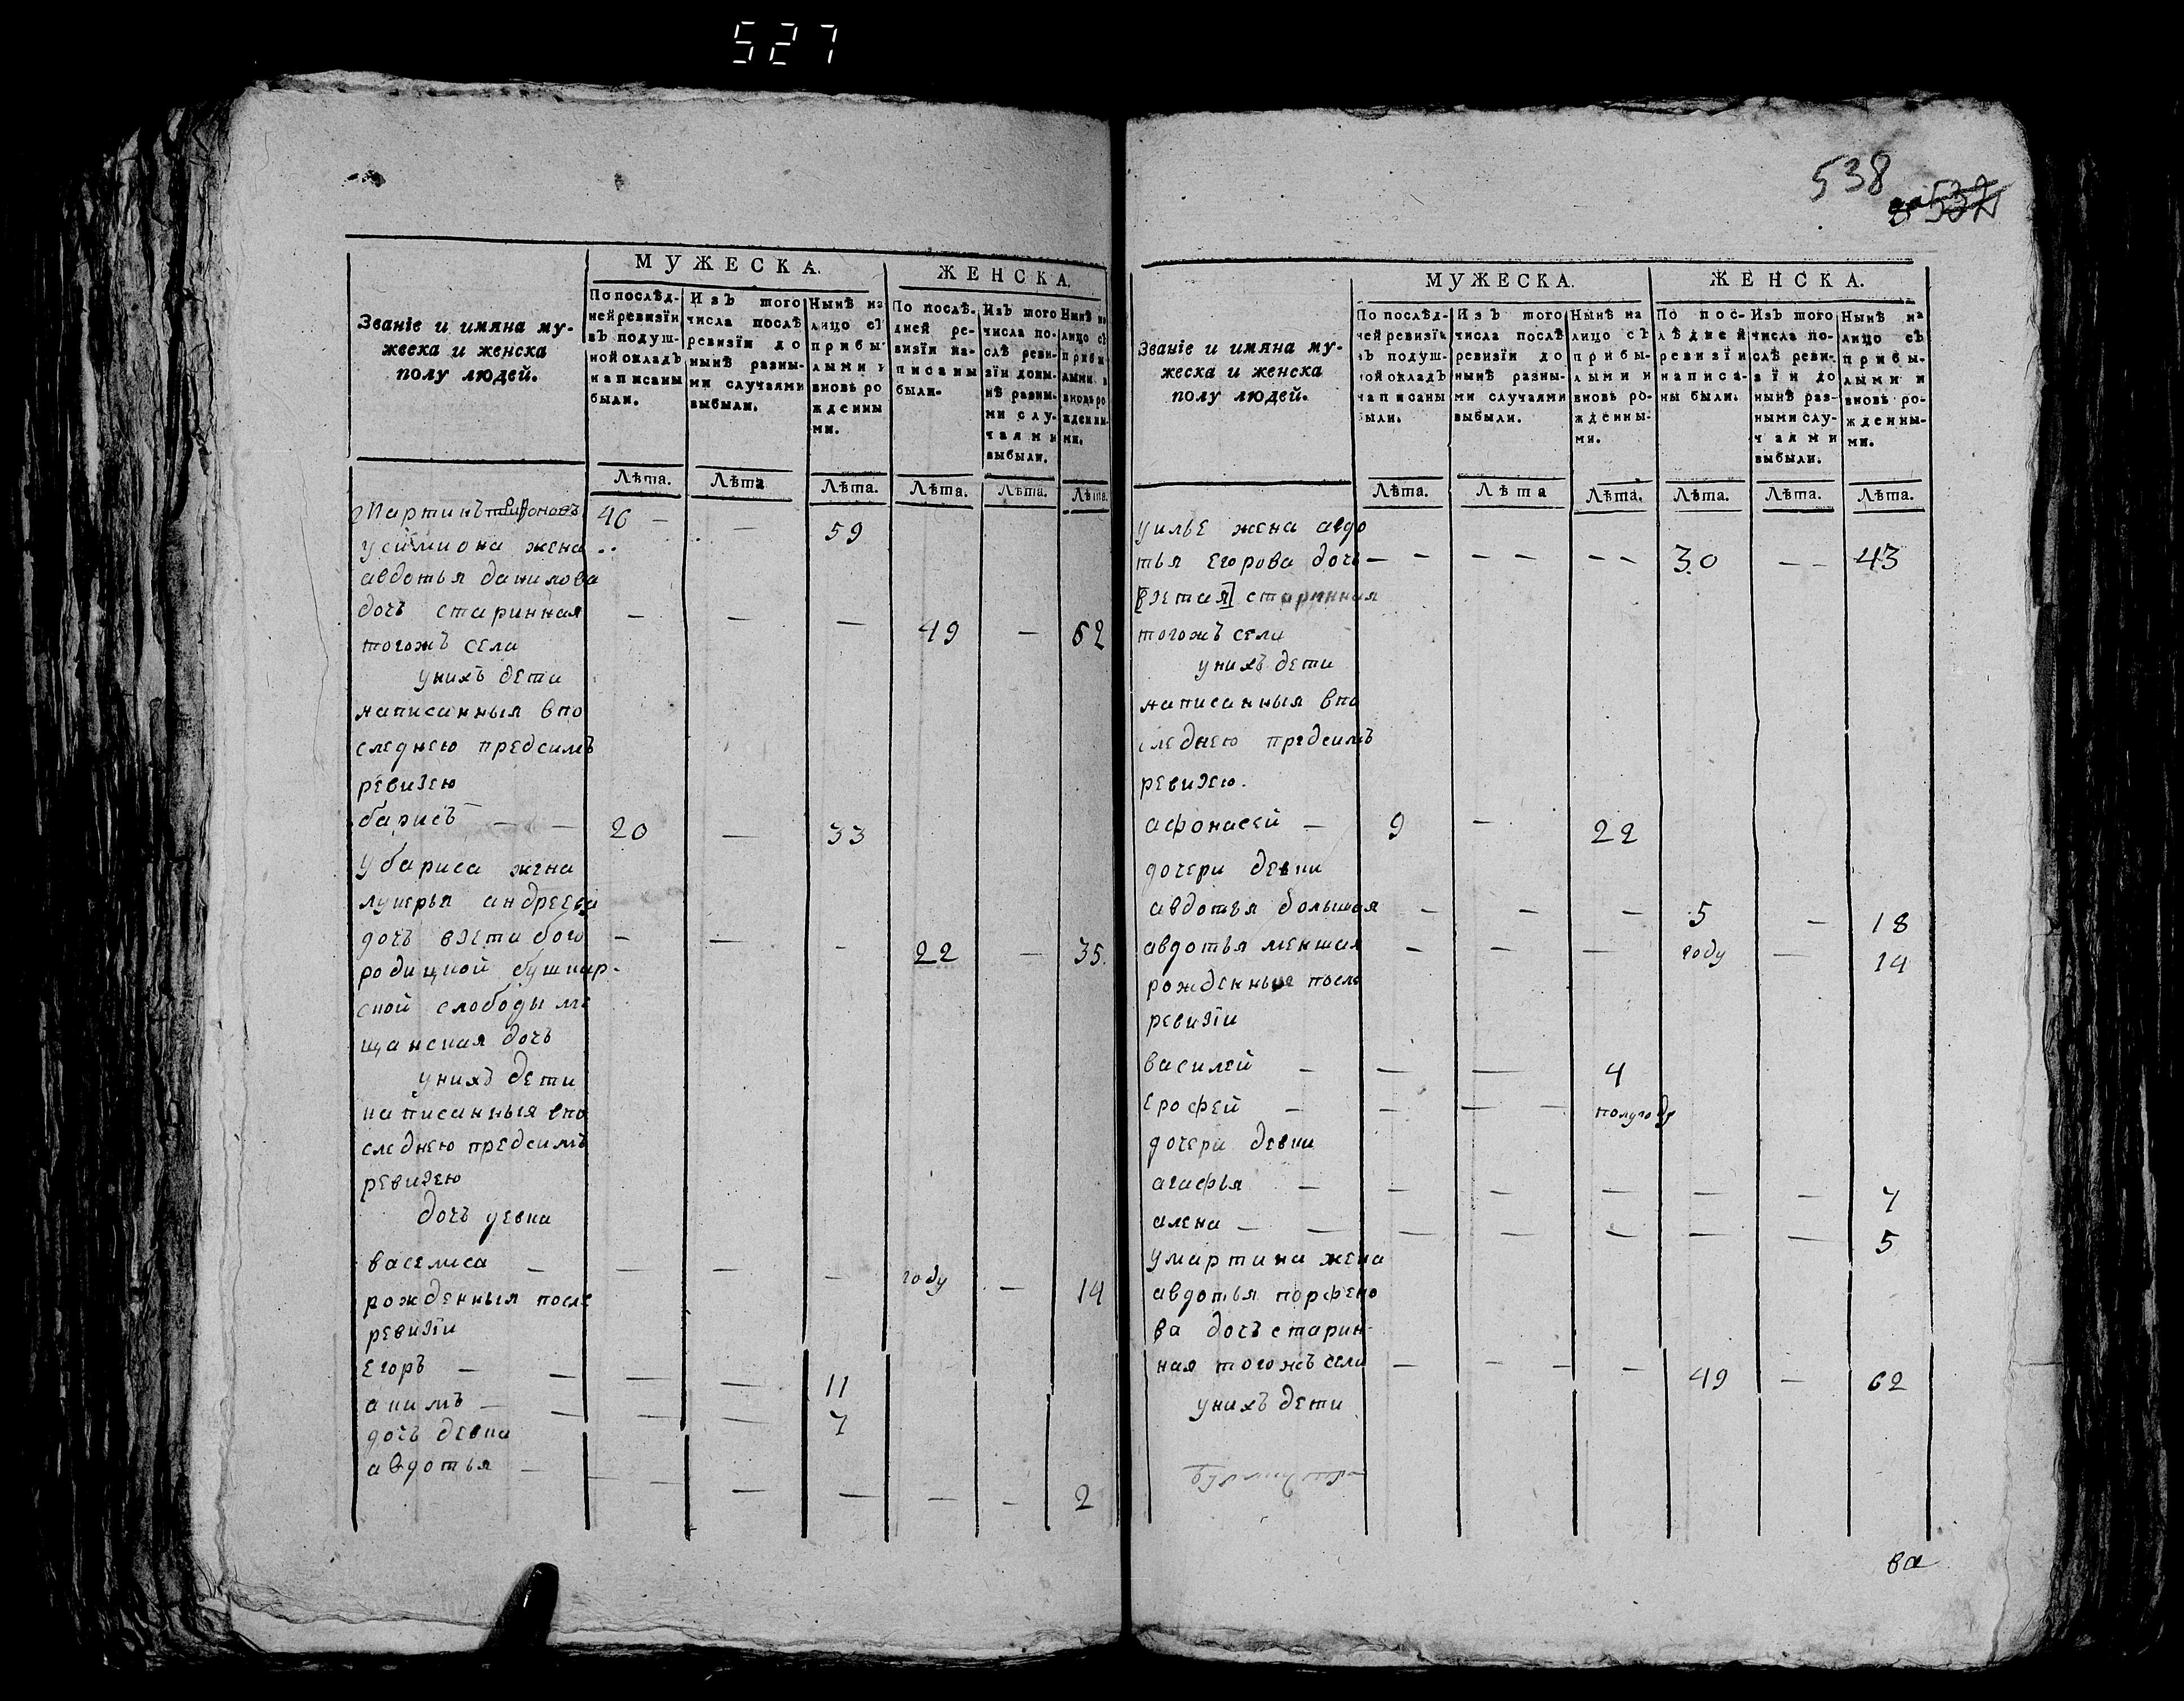 527
МУЖЕСКА. ЖЕНСКА.
Званїе и имяна му-
жеска и женска
полу людей.
По послѣд-
ней ревизїи
въ подуш-
ной окладъ
написаны
были.
Изъ того
числа послѣ
ревизїи до
нынѣ разны-
ми случаями
выбыли.
Нынѣ на
лицо съ
прибы
лыми и
вновь ро
жденны
ми.
По послѣ-
дней ре-
визїи на-
писаны
были.
Изъ того
числа по-
слѣ реви-
зїи до ны-
нѣ разны-
ми слу-
чаями
выбыли.
Нынѣ на
лицо съ
прибы
лыми и
вновь ро
жденны-
ми.
Лѣта. Лѣта Лѣта. Лѣта. Лѣта. Лѣта.
Мартинъ 46 — — 59
у симиона жена
авдотья данилова
дочь старинная — — — 49 — 62
тогожъ села
унихъ дети
написанныя впо
следнею предсимъ
ревизею
барисъ — — 20 — 33
убариса жена
лукерья андреева
дочь взята бого — — - 22 — 35.
родицкой бушкар-
ской слободы ме
щанская дочь
унихъ дети
написанныя впо
следнею предсимъ
ревизею
дочь девка
васелиса — — — — году — 14
рожденныя после
ревизїи
Егоръ — — — — 11
акимъ — — — — 7
дочь девка
авдотья — — — — — - 2
538
МУЖЕСКА. ЖЕНСКА.
Званїе и имяна му-
жеска и женска
полу людей.
По послѣд-
ней ревизїи
въ подуш-
ной окладъ
написаны
были.
Изъ того
числа послѣ
ревизїи до
нынѣ разны-
ми случаями
выбыли.
Нынѣ на
лицо съ
прибы-
лыми и
вновь ро-
жденны-
ми.
По пос-
лѣдней
ревизїи
написа-
ны были.
Изъ того
числа по-
слѣ реви-
зїи до
нынѣ раз-
ными слу-
чаями
выбыли.
Нынѣ на
лицо съ
прибы-
лыми и
вновь ро-
жденны-
ми.
Лѣта. Лѣта Лѣта. Лѣта. Лѣта. Лѣта.
уилье жена авдо
тья Егорова дочь — - - - - - 30 - - 43
[взятая] старинная
тогожъ села
унихъ дети
написанныя впо
следнею предсимъ
ревизею.
афонасей — 9 - 22
дочери девки
авдотья большая — — — 5 — 18
авдотья меншая — — — году — 14
рожденные после
ревизїи
василей — — — 4
Ерофей — — — — полугоду
дочери девки
агафья — — — — — — 7
алена — — — — — — — 5
умартина жена
авдотья парфено
ва дочь старин-
ная тогожъ села — - - — 49 — 62
унихъ дети
ва